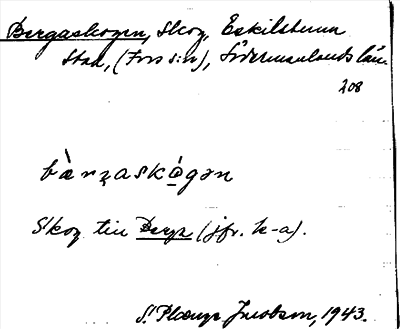 Bergaskogen, Skog, Eskilstuna
Stad, (Fors s:n), Södermanlands län
208
bæ̀rʒaskǿgən
Skog till Berga (jfr. k-a).
Jacobson, 1943.